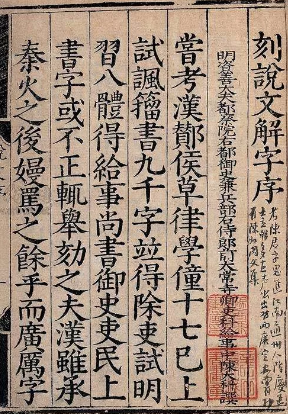 刻說文解字序
明資善大夫都察院右都御史兼兵部右侍郎前太常寺卿吏科給事中陳大科撰
嘗考漢酇侯草律學僮十七已上
試諷籀書九千字竝得除吏試明
習八體得給事尚書御史吏民上
書字或不正輒舉劾之夫漢雖承
秦火之後嫚罵之餘乎而廣厲字